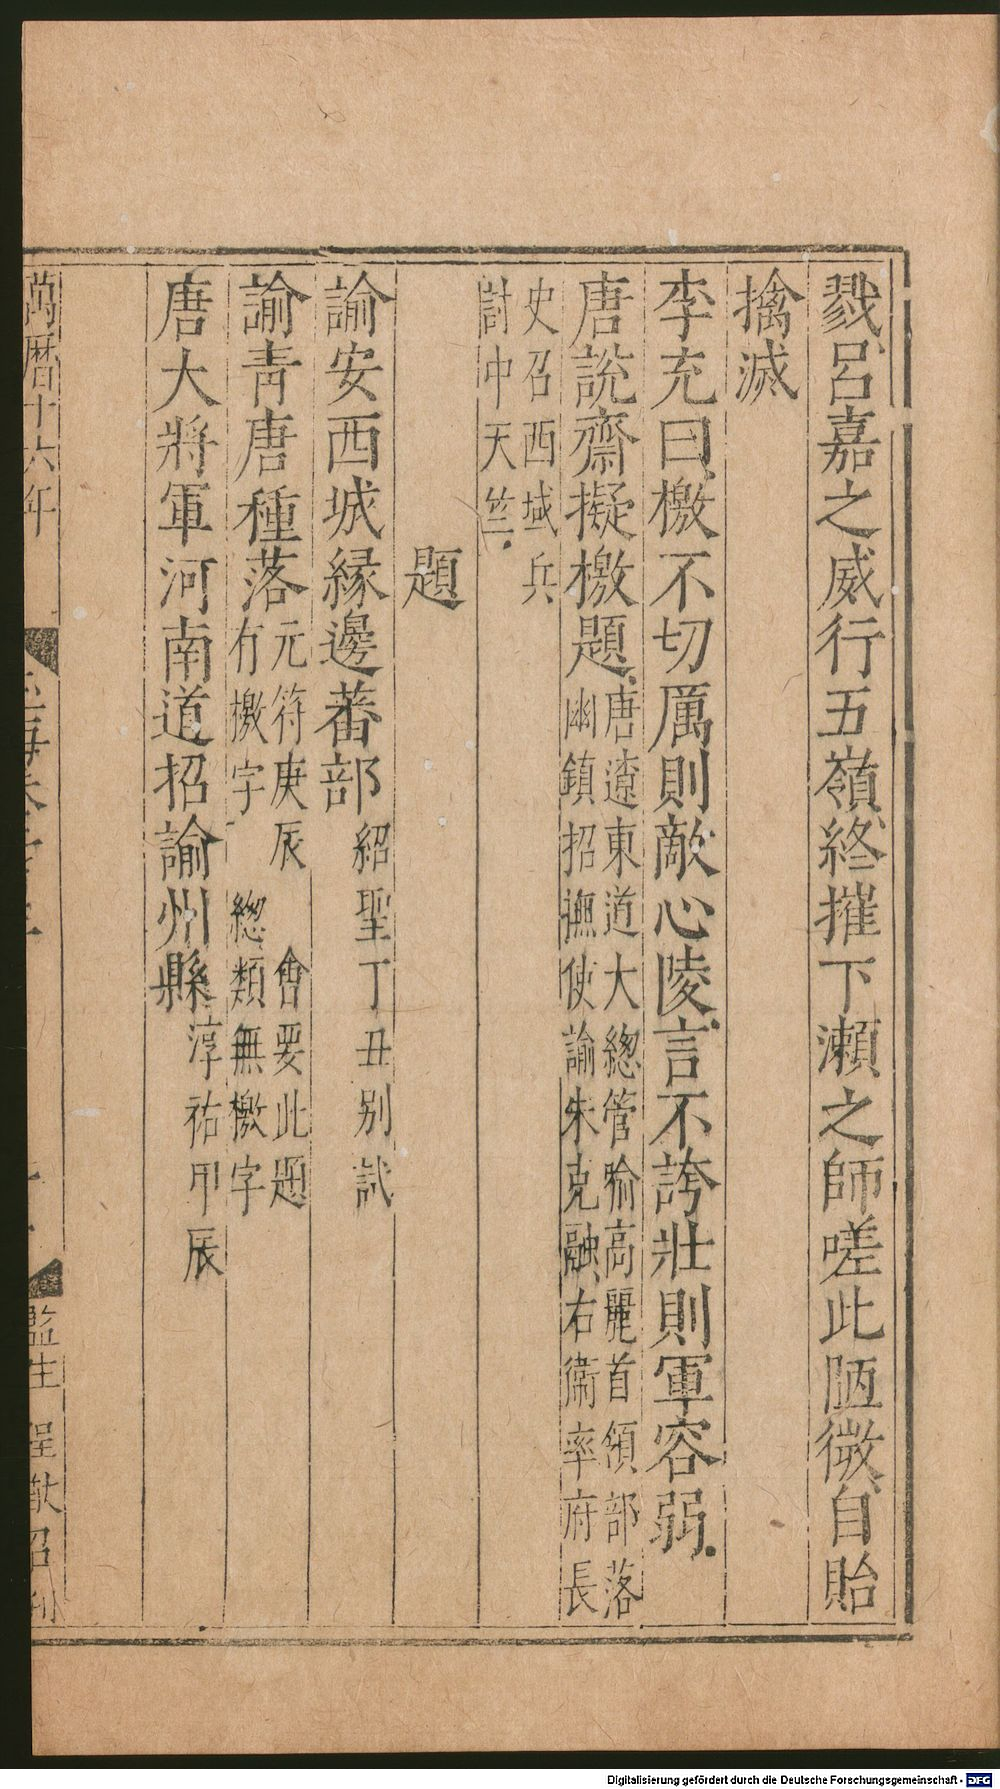 戮呂嘉之威行五嶺終摧下瀨之師嗟此陋微自貽
擒滅
李充曰檄不切厲則敵心陵言不誇壯則軍容弱
唐說齋擬檄題唐遼東道大總管喻高麗首領部落
幽鎮招撫使諭朱克融右衛率府長
史召西域兵
討中天竺
題
諭安西城緣邊蕃部紹聖丁丑別試
諭青唐種落元符庚辰 會要此題
有檄字 總類無檄字
唐大將軍河南道招諭州縣淳祐甲辰
萬曆十六年
監生 程
Digitalisierung gefördert durch die Deutsche Forschungsgemeinschaft - DFG